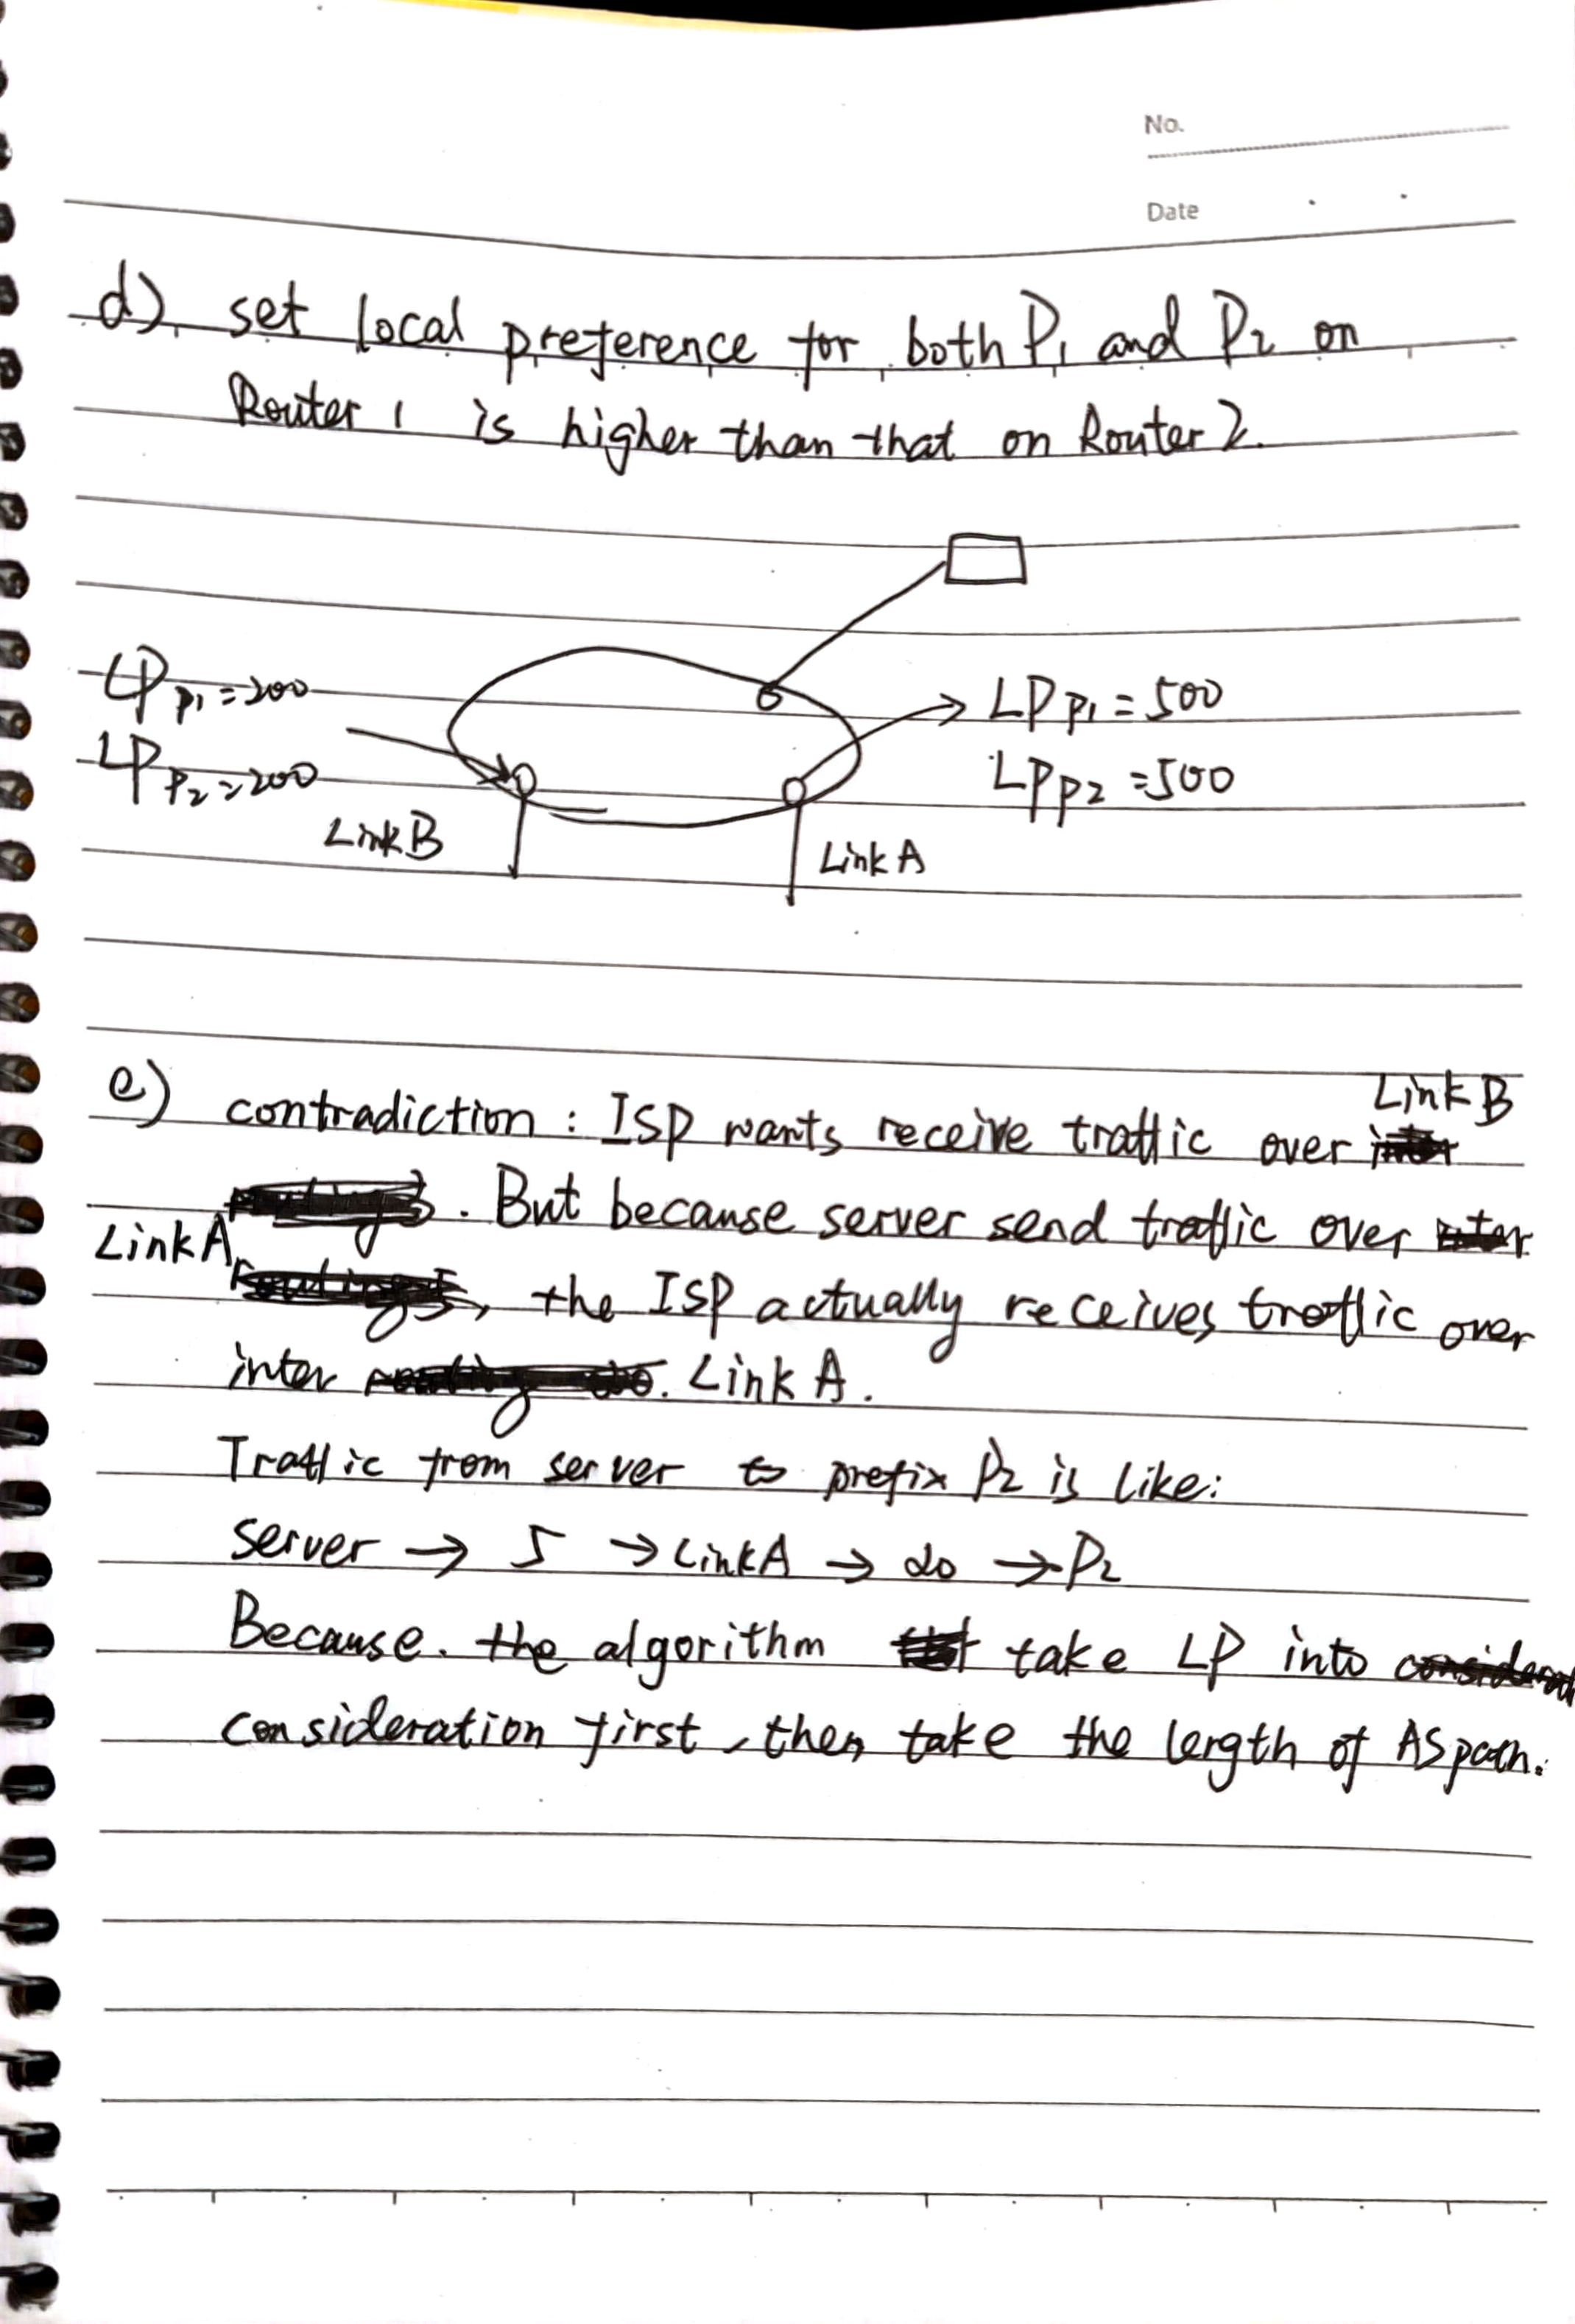 No.
Date
d) set local preference for both P1 and P2 on
Router 1 is higher than that on Router 2.
LP P1 = 200
LP P2 = 200
LP P1 = 500
LP P2 = 500
Link B
Link A
Link B
e) contradiction : ISP wants receive traffic over
. But because server send traffic over
Link A
, the ISP actually receives traffic over
inter Link A.
Traffic from server to prefix P2 is like:
server → 5 → Link A → 20 → P2
Because. the algorithm take LP into
consideration first, then take the length of AS path.